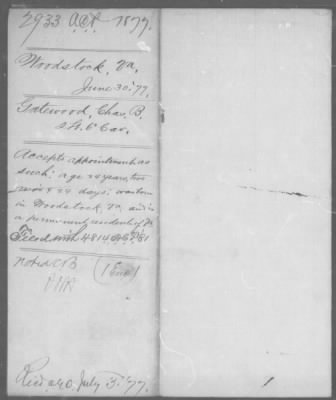 2933 A.C.P. 1877.
Woodstock, Va,
June 30. '77.
Gatewood, Chas. B.
2 Lt. 6" Cav.
Accepts appointment as
such: age 24 years, two
& 24 days: was born
in Woodstock, Va, and is
a permanent resident of Va
Filed with 4814 '81
Noted CB
(1 Enc)
Rec'd A.G.O. July 3. '77.
1